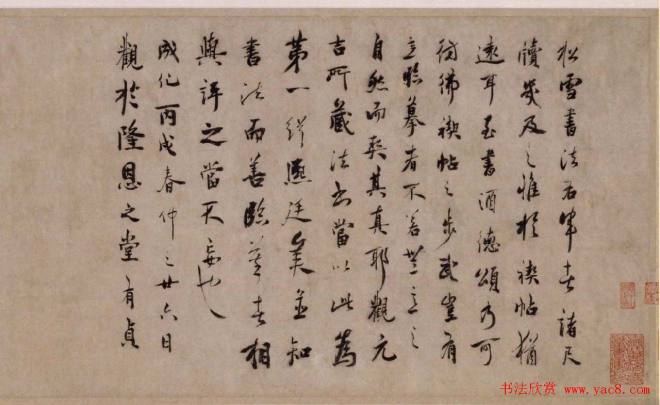 松雪書法右軍者諸尺
牘幾及之惟於禊帖猶
遠耳至書酒德頌乃可
彷彿禊帖之步武豈有
意臨摹者不若無意之
自然而契其真耶觀元
吉所藏法書當以此為
第一 廷美並知
書法而善臨摹者相
與評之當不妄也
成化丙戌春仲之廿六日
觀於隆恩之堂有貞
书法欣赏 www.yac8.com